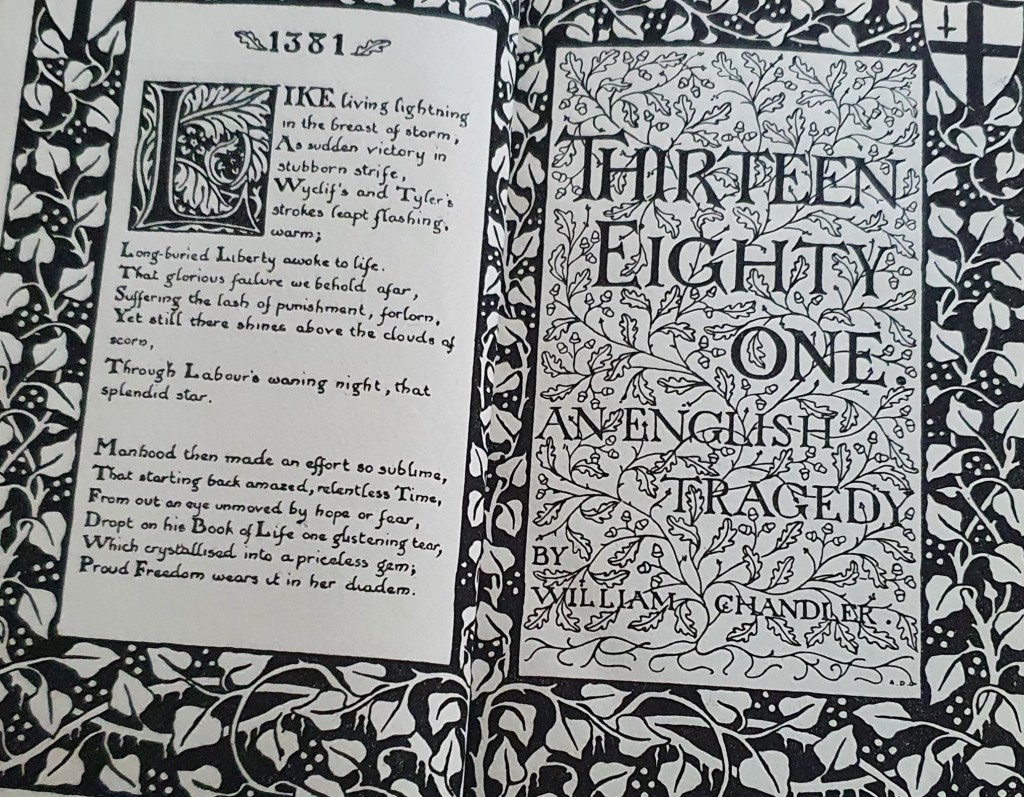 1381
LIKE living lightning
in the breast of storm,
As sudden victory in
stubborn strife,
Wyclif's and Tyler's
strokes leapt flashing,
warm;
Long-buried Liberty awoke to life.
That glorious failure we behold afar,
Suffering the lash of punishment, forlorn,
Yet still there shines above the clouds of
scorn,
Through Labour's waning night, that
splendid star.
Manhood then made an effort so sublime,
That starting back amazed, relentless Time,
From out an eye unmoved by hope or fear,
Dropt on his Book of Life one glistening tear,
Which crystallised into a priceless gem;
Proud Freedom wears it in her diadem.
THIRTEEN
EIGHTY
ONE.
AN ENGLISH
TRAGEDY
BY
WILLIAM CHANDLER.